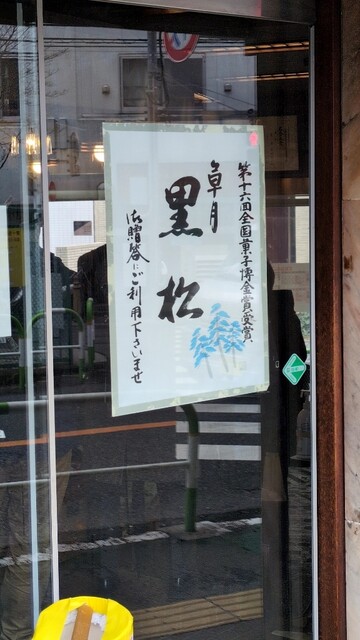 第十六回全国菓子博金賞受賞
皐月
黒松
御贈答にご利用下さいませ